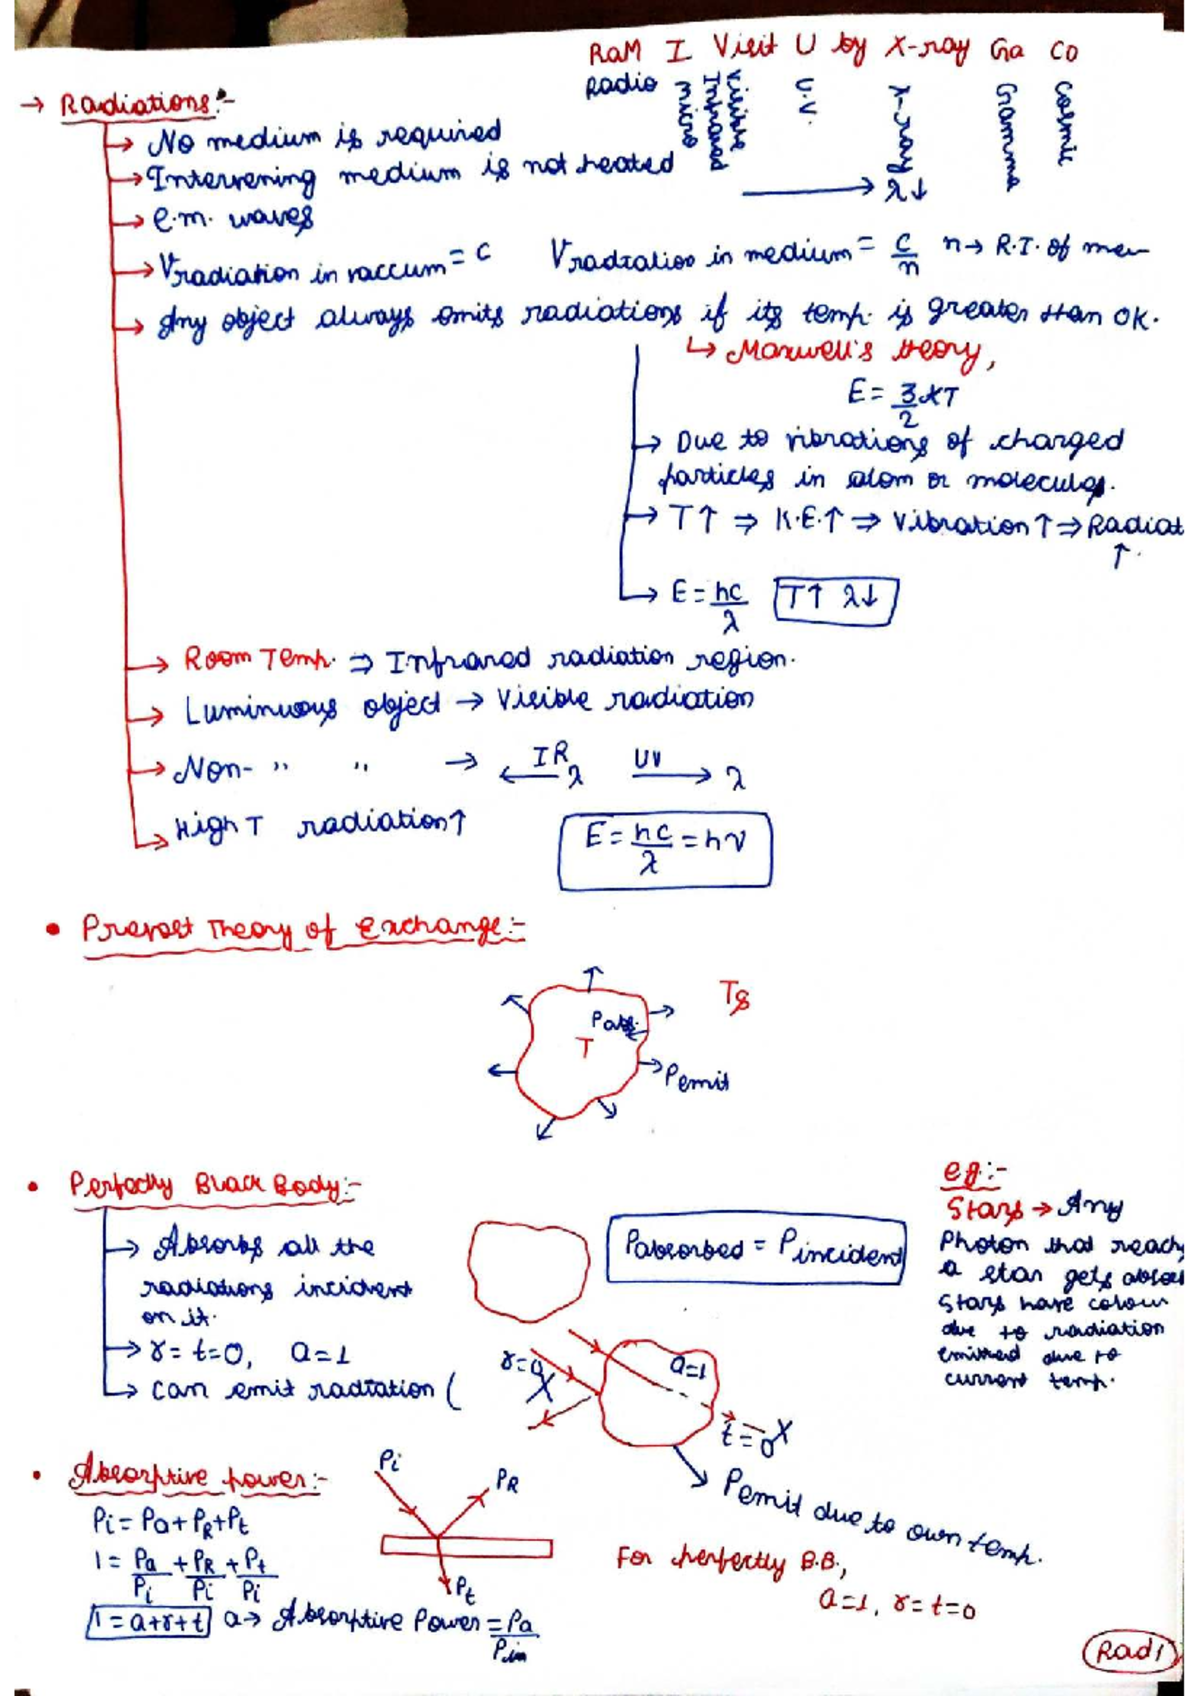 RaM I Visit U by X-ray Ga Co
Radio Micro Infrared Visible U.V. X-ray Gamma Cosmic
→ Radiations:-
→ No medium is required
→ Intervening medium is not heated
→ λ↓
→ e.m. waves
→ Vradiation in vaccum = c Vradiation in medium = c/n n→ R.I. of me
→ Any object always emits radiations if its temp. is greater than 0K.
↳ Maxwell's theory,
E = 3/2 KT
→ Due to vibrations of charged
particles in atom or molecules.
→ T↑ ⇒ K.E.↑ ⇒ Vibration↑ ⇒ Radiat
↑.
→ E = hc/λ T↑ λ↓
→ Room Temp. ⇒ Infrared radiation region.
→ Luminuous object → Visible radiation
→ Non- " " → IR λ UV λ
→ High T radiation↑
E = hc/λ = hν
• Prevost Theory of Exchange:-
Ts
Pabs.
T
Pemit
• Perfectly Black Body:-
→ Absorbs all the
radiations incident
on it.
→ r = t = 0, a = 1
→ can emit radiation (
Pabsorbed = Pincident
r = 0 X
a = 1
t = 0 X
Pemit due to own temp.
eg:-
Stars → Any
Photon that reach
a star gets absor
Stars have colour
due to radiation
emitted due to
current temp.
• Absorptive power:-
Pi = Pa + PR + Pt
1 = Pa/Pi + PR/Pi + Pt/Pi
1 = a + r + t a → Absorptive Power = Pa/Pin
Pi
PR
Pt
For perfectly B.B.,
a = 1, r = t = 0
Rad 1